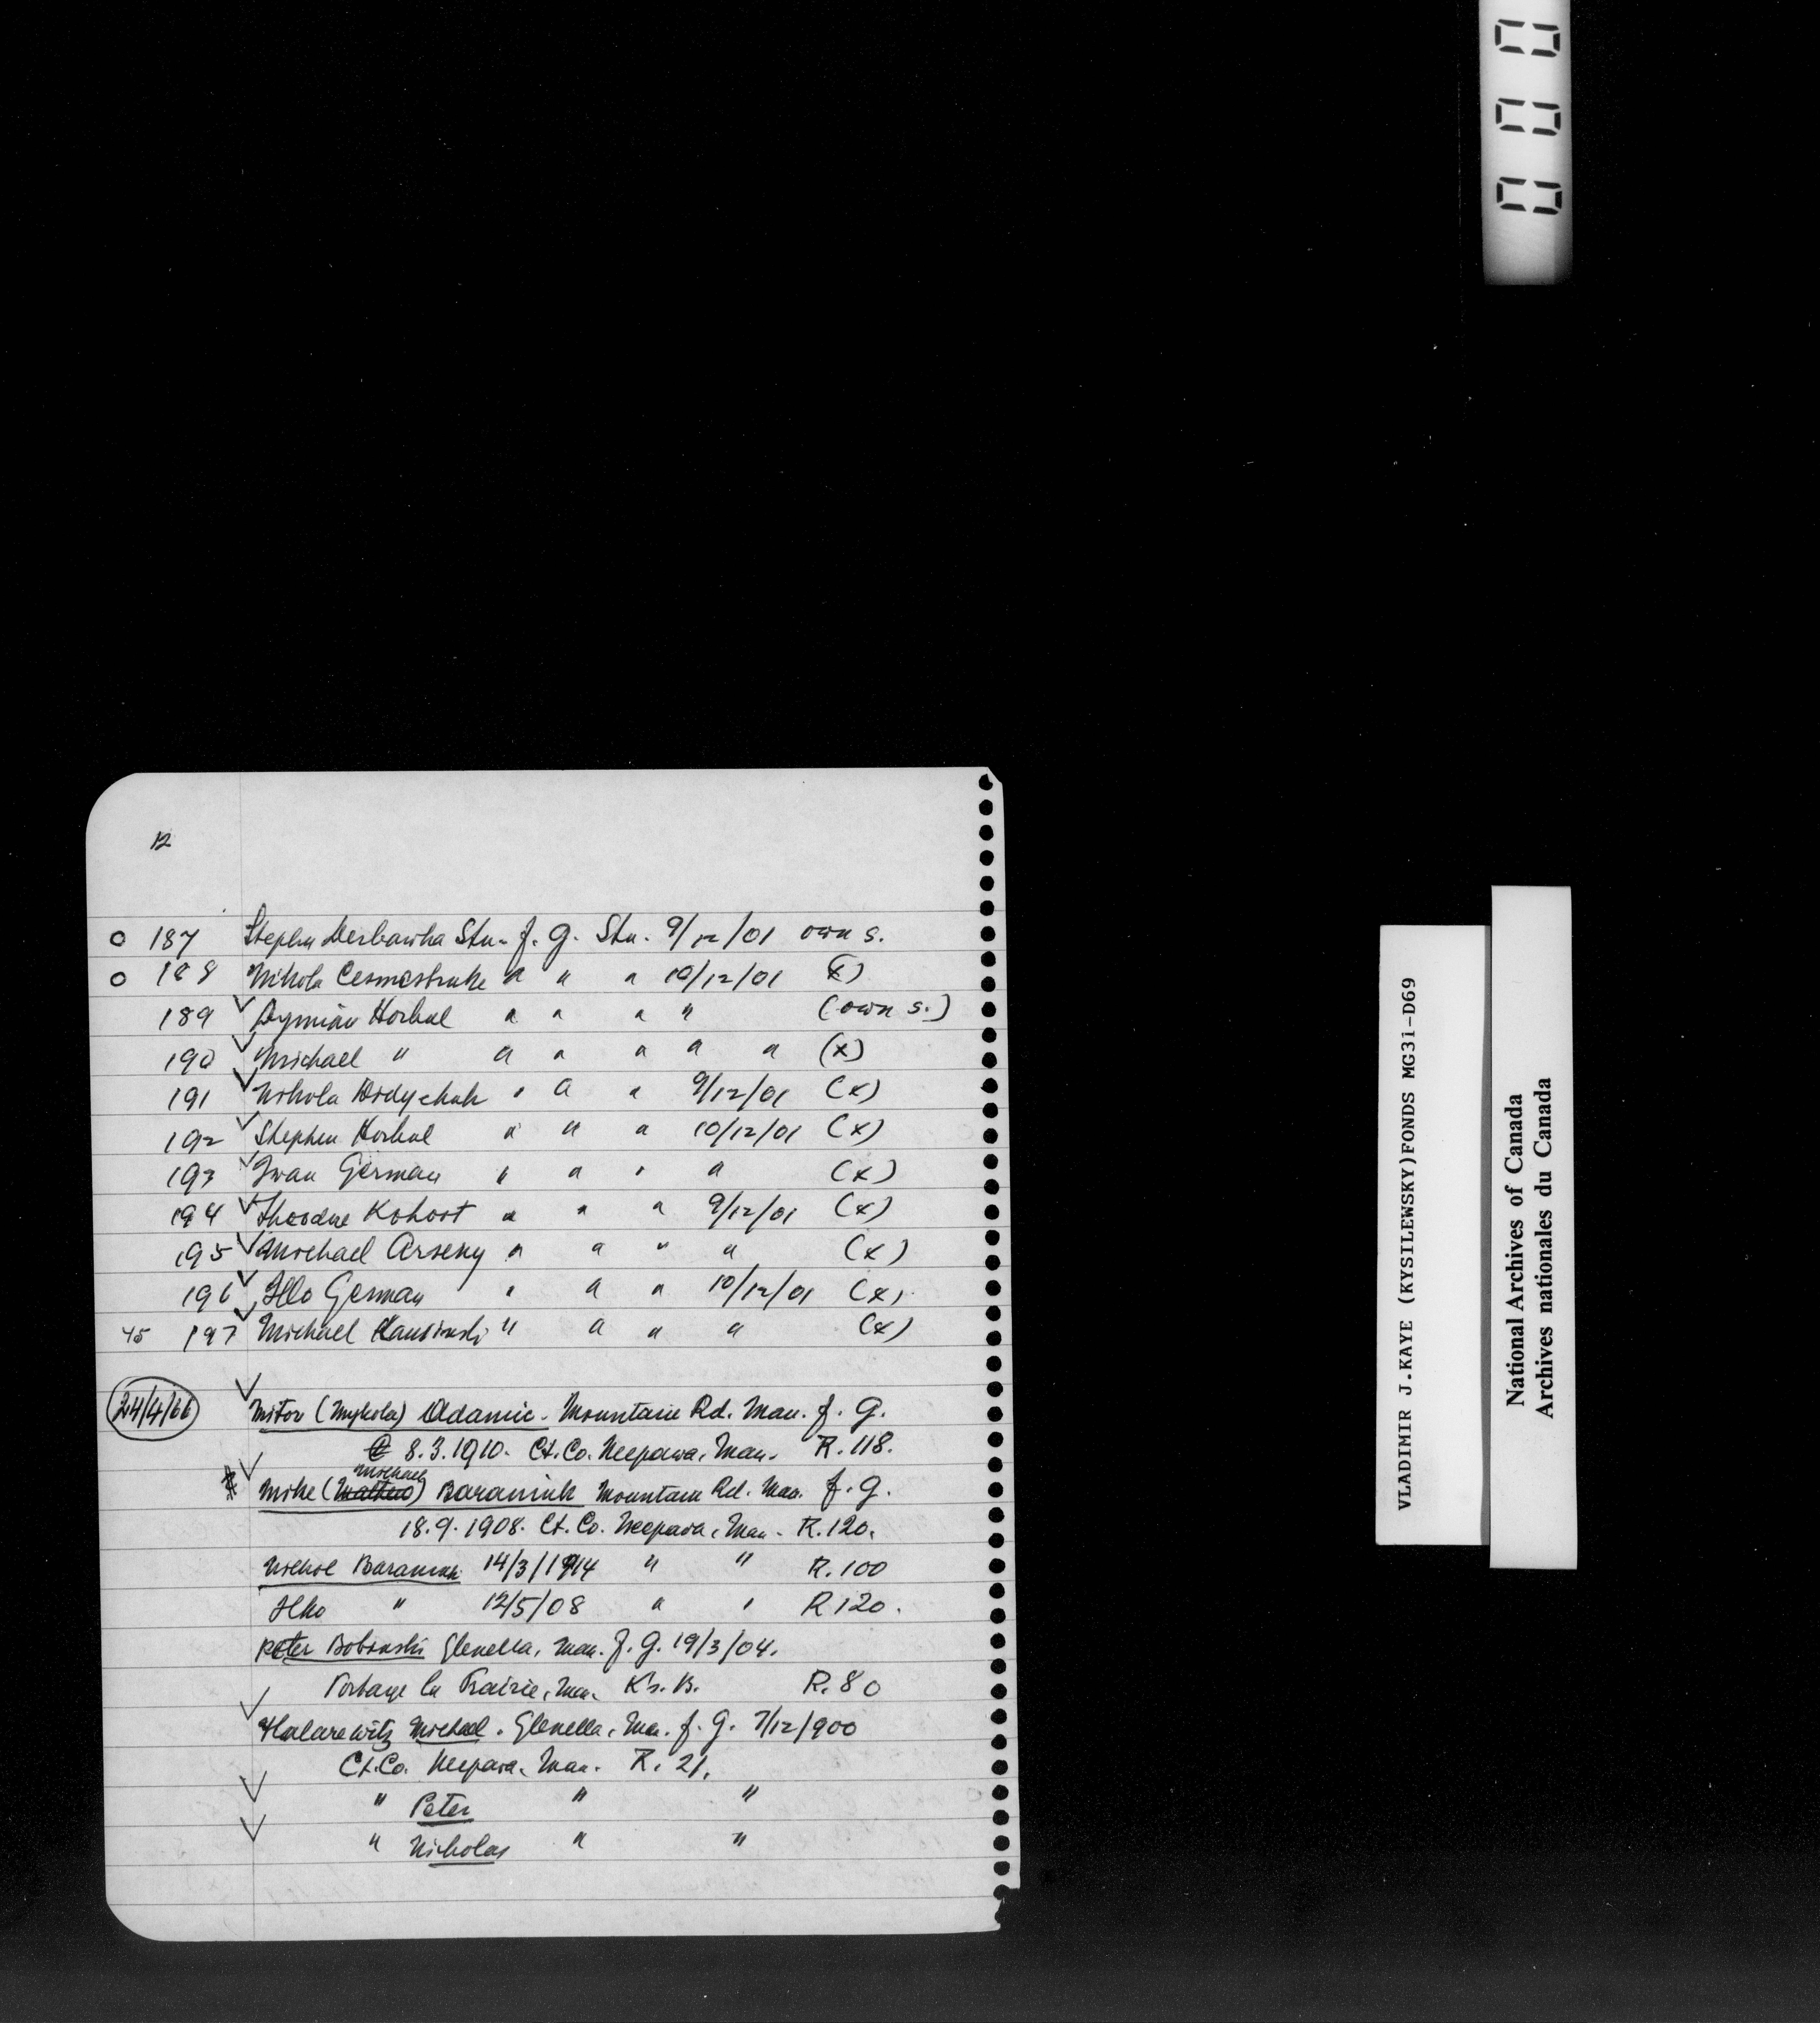 12
o 187 Stephen Derbawka Stu. f. g. Stu. 9/12/01 own s.
o 188 Nikola " " " 10/12/01 (x)
189 Dymian Horbal " " " " (own s.)
190 Michael " " " " " " (x)
191 Nikola Didychuk " " " 9/12/01 (x)
192 Stephen Horbal " " " 10/12/01 (x)
193 Iwan German " " " " (x)
194 Theodore Kohoot " " " 9/12/01 (x)
195 Michael Arseny " " " " (x)
196 Ilko German " " " 10/12/01 (x)
45 197 Michael " " " " (x)
24/4/66
Mitov (Mykola) Adamic - Mountain Rd. Man. f. g.
8.3.1910. Ct. Co. Neepawa, Man. R. 118.
Michael
Mike ( ) Baraniuk Mountain Rd. Man. f. g.
18.9.1908. Ct. Co. Neepawa, Man. R. 120.
Nickol Baraniuk 14/3/1914 " " R. 100
Ilko " 12/5/08 " " R 120.
Peter Bobinski Glenella, Man. f. g. 19/3/04.
Portage la Prairie, Man. K's. B. R. 80
Halarewitz Michael. Glenella, Man. f. g. 7/12/900
Ct. Co. Neepawa, Man. R. 21.
" Peter " "
" Nicholas " "
VLADIMIR J.KAYE (KYSILEWSKY)FONDS MG31-D69
National Archives of Canada
Archives nationales du Canada
000